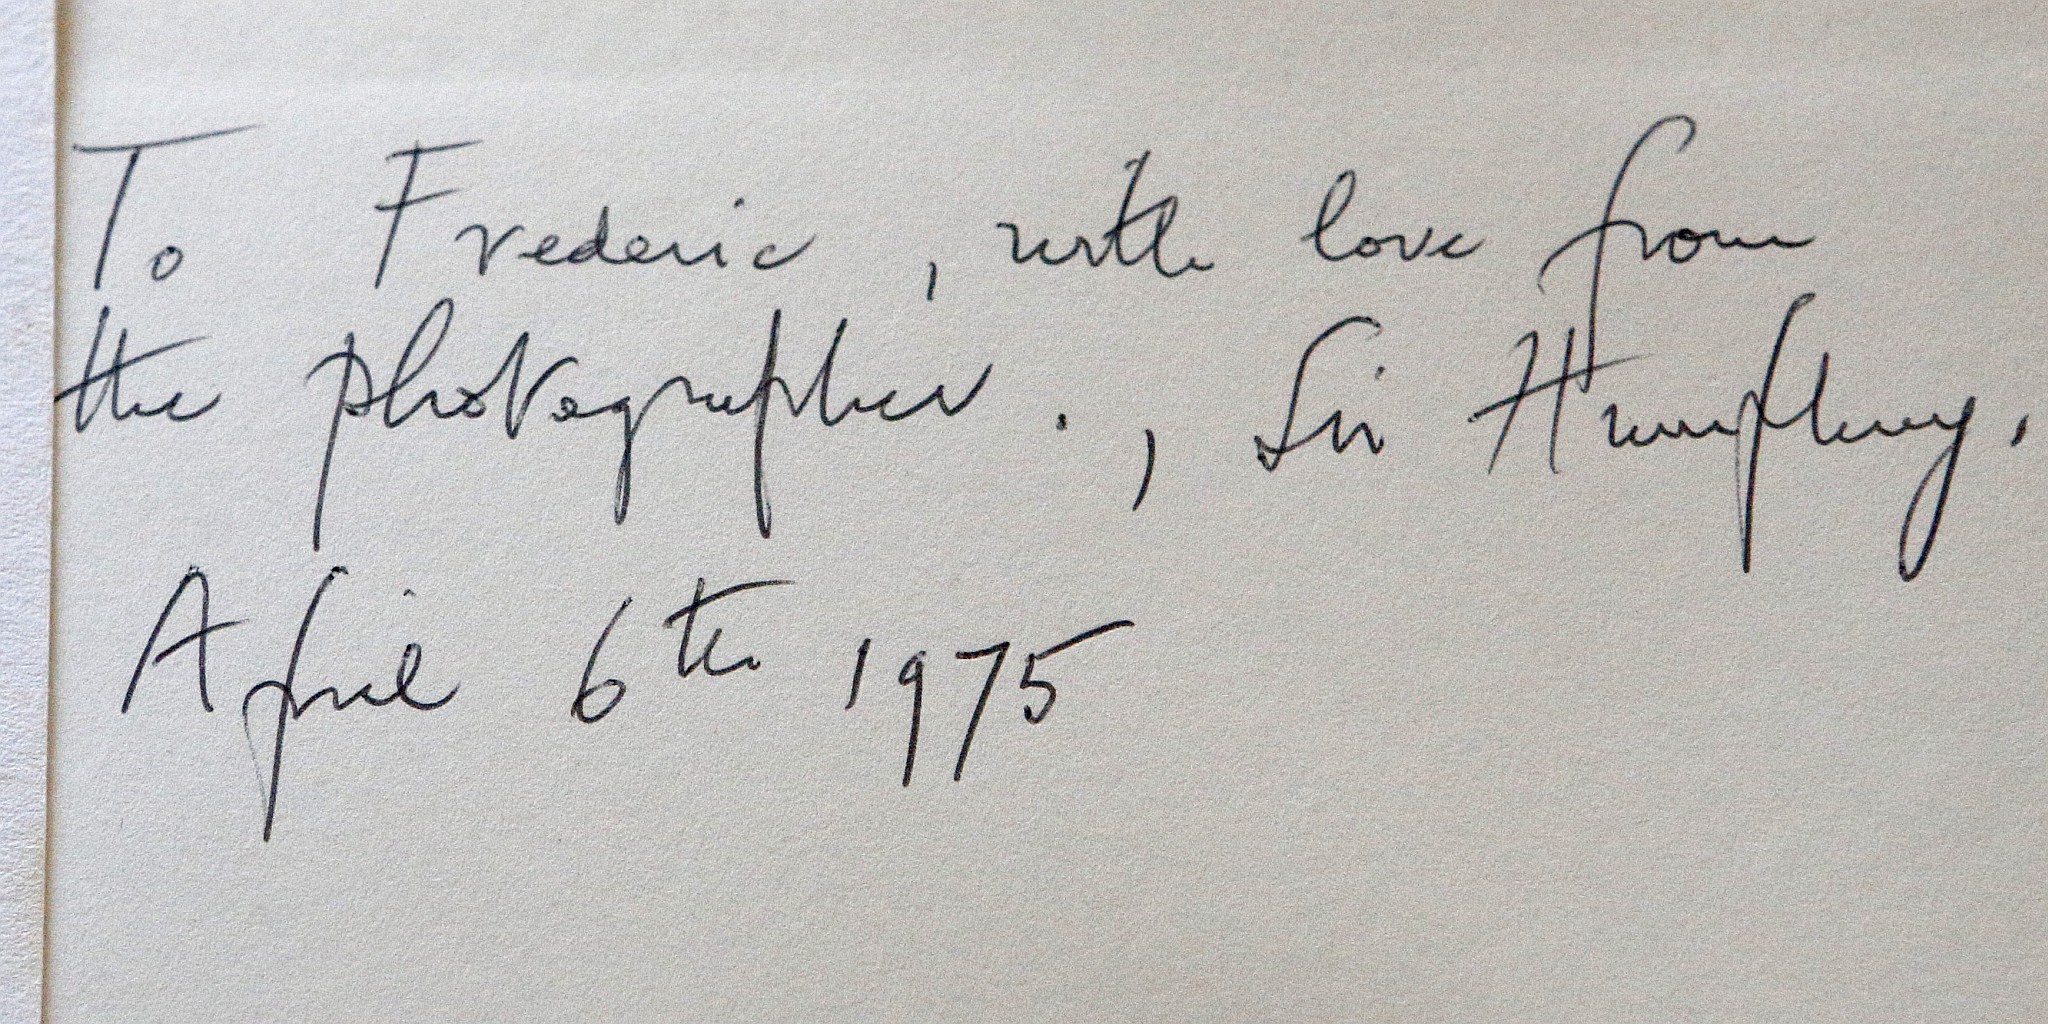 To Frederic, with love from
the photographer., Sir Humphrey.
April 6th 1975